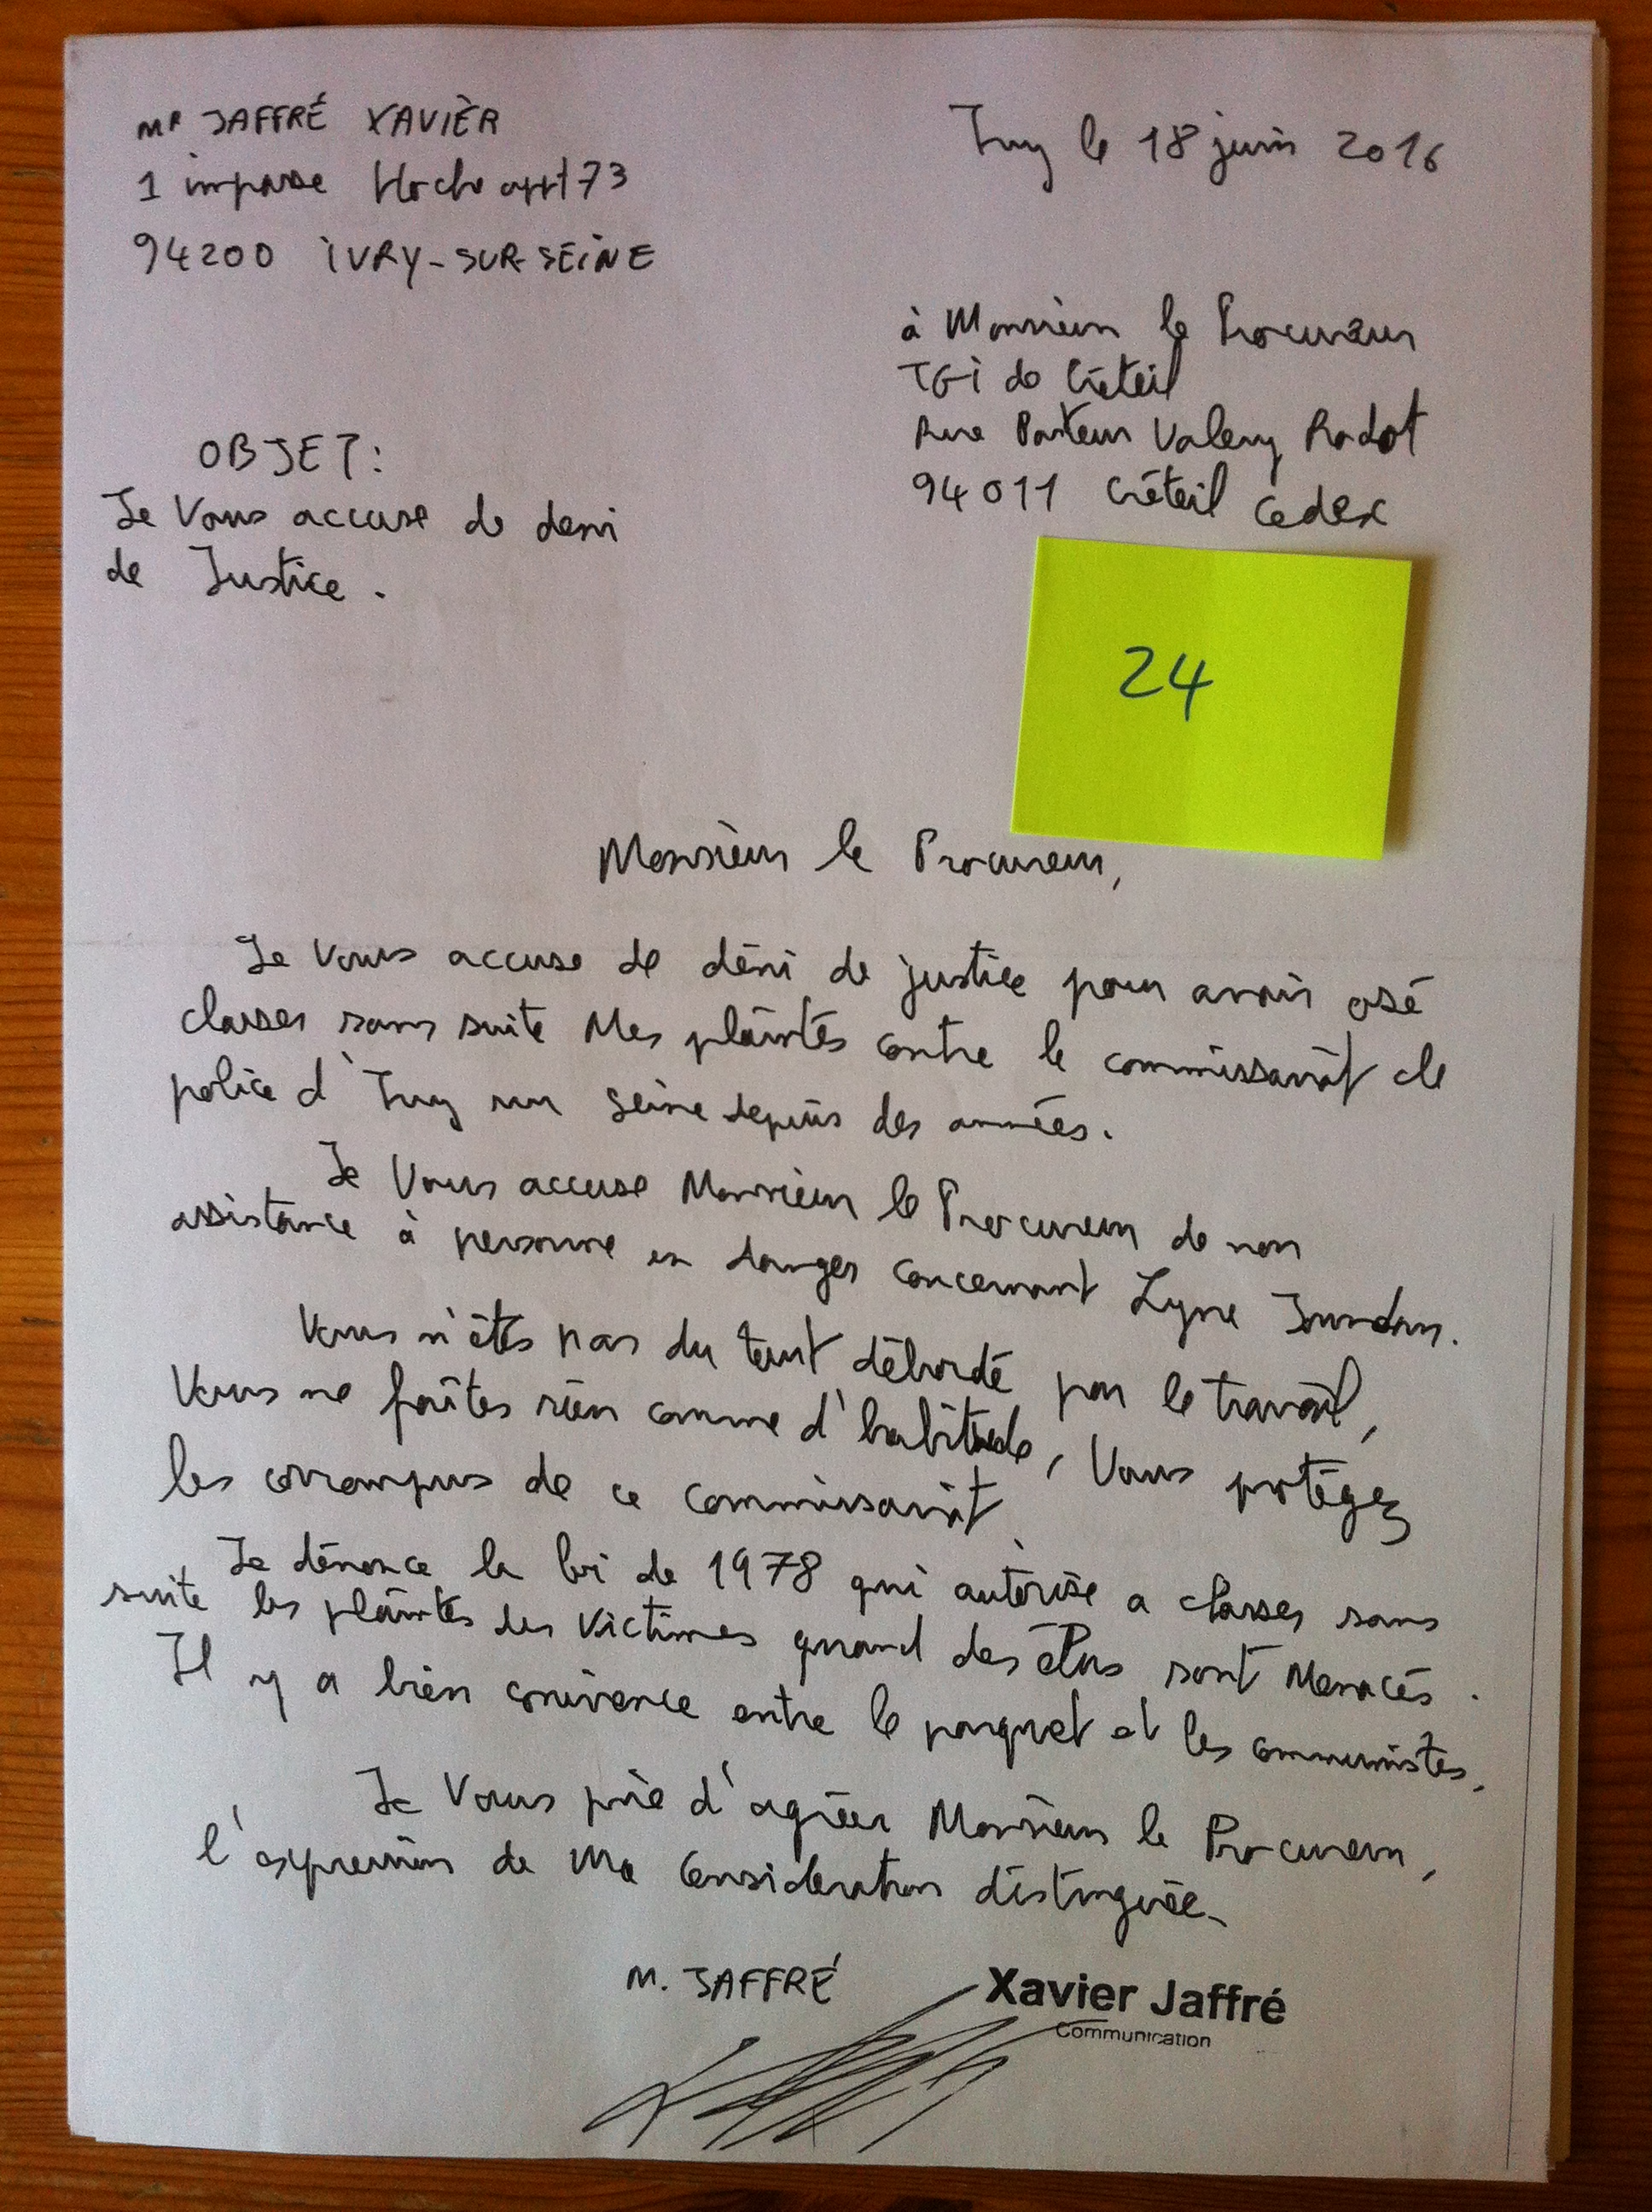 Mr JAFFRÉ XAVIER
1 impasse Hoche appt 73
94200 IVRY-SUR-SEINE
Ivry le 18 juin 2016
à Monsieur le Procureur
TGI de Créteil
Rue Pasteur Valery Radot
94011 Créteil Cedex
OBJET:
Je Vous accuse de deni
de Justice.
24
Monsieur le Procureur,
Je Vous accuse de déni de justice pour avoir osé
classer sans suite Mes plaintes contre le commissariat de
police d'Ivry sur Seine depuis des années.
Je Vous accuse Monsieur le Procureur de non
assistance à personne en danger concernant Lyne
Vous n'êtes pas du tout débordé par le travail,
Vous ne faites rien comme d'habitude, Vous protégez
les corrompus de ce commissariat.
Je dénonce la loi de 1978 qui autorise a classer sans
suite les plaintes des Victimes quand des élus sont Menacés.
Il y a bien conivence entre le parquet et les communistes.
Je Vous prie d'agréer Monsieur le Procureur,
l'expression de Ma Consideration distinguée.
M. JAFFRÉ
Xavier Jaffré
Communication